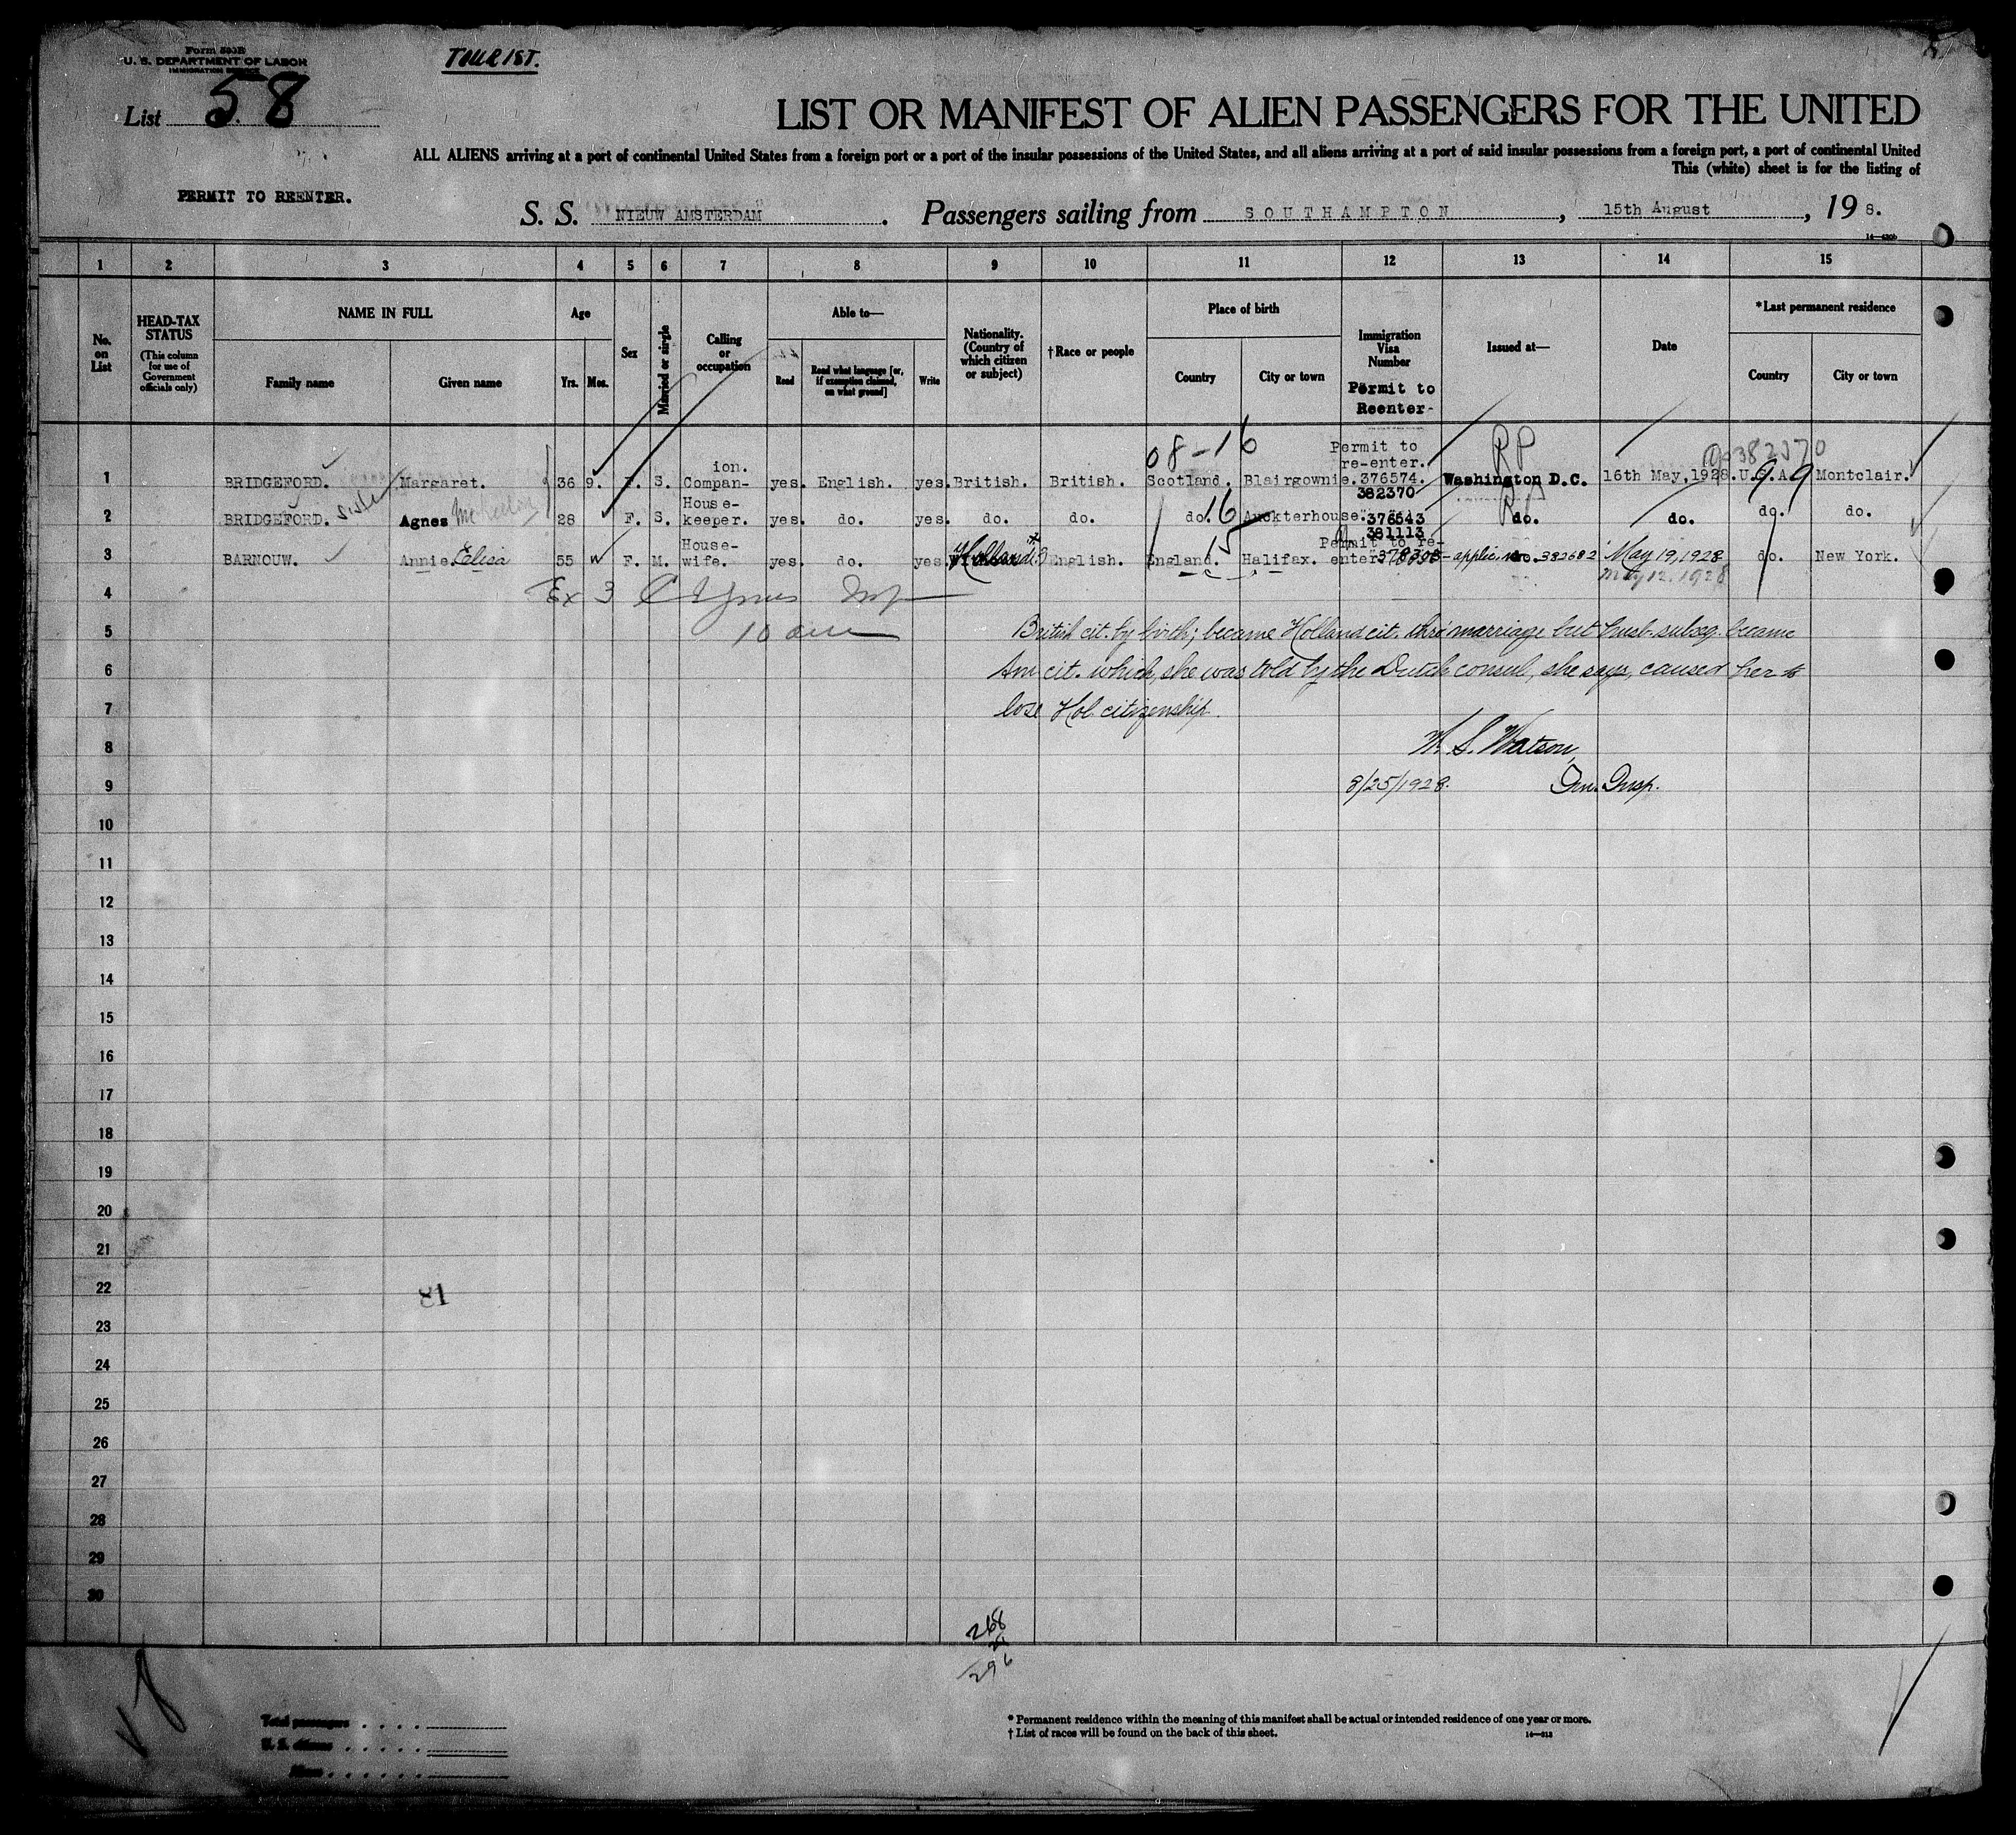 Form 500B
U. S. DEPARTMENT OF LABOR
IMMIGRATION SERVICE
TOURIST.
List 58
LIST OR MANIFEST OF ALIEN PASSENGERS FOR THE UNITED
ALL ALIENS arriving at a port of continental United States from a foreign port or a port of the insular possessions of the United States, and all aliens arriving at a port of said insular possessions from a foreign port, a port of continental United
This (white) sheet is for the listing of
PERMIT TO REENTER.
S. S. NIEUW AMSTERDAM . Passengers sailing from SOUTHAMPTON , 15th August , 19 8.
1 2 3 4 5 6 7 8 9 10 11 12 13 14 15
No. on List
HEAD-TAX STATUS
(This column for use of Government officials only)
NAME IN FULL
Family name Given name
Age
Yrs. Mos.
Sex
Married or single
Calling or occupation
Able to—
Read Read what language [or, if exemption claimed, on what ground] Write
Nationality. (Country of which citizen or subject)
†Race or people
Place of birth
Country City or town
Immigration Visa Number
Permit to Reenter-
Issued at—
Date
*Last permanent residence
Country City or town
08-16 Permit to RP 382370
ion. re-enter.
1 BRIDGEFORD. Margaret. 36 9. F. S. Compan- yes. English. yes. British. British. Scotland. Blairgownie. 376574. Washington D.C. 16th May, 1928. U.S.A. Montclair.
382370
House-
2 BRIDGEFORD. sister Agnes 28 F. S. keeper. yes. do. yes. do. do. do. 16 Auckterhouse. 376543 do. do. do. do.
381113
House- 15 Permit to re-
3 BARNOUW. Annie Eliza 55 F. M. wife. yes. do. yes. Holland English. England. Halifax. enter. 378308 - applic. no. 382682 May 19, 1928 do. New York.
May 12, 1928
4 Ex 3
5 10 am British cit. by birth; became Holland cit. thro' marriage but husb. subsq. became
6 Am cit. which, she was told by the Dutch consul, she says, caused her to
7 lose Hol. citizenship.
8 W. S. Watson,
9 8/25/1928. Im. Insp.
10
11
12
13
14
15
16
17
18
19
20
21
22
81
23
24
25
26
27
28
29
30
268
296
Total passengers
U. S. citizens
Aliens
* Permanent residence within the meaning of this manifest shall be actual or intended residence of one year or more.
† List of races will be found on the back of this sheet.